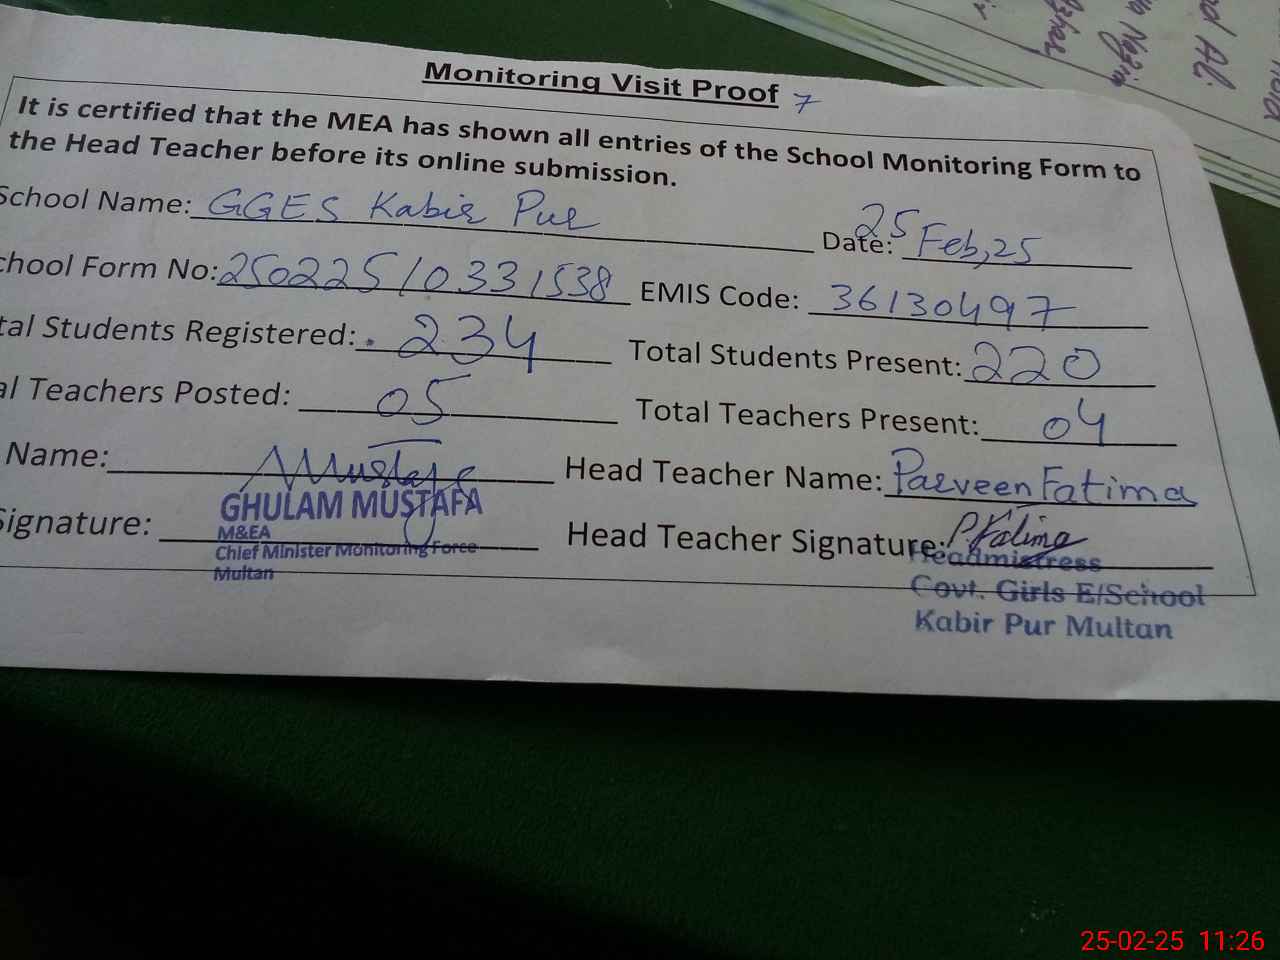 Monitoring Visit Proof 7
It is certified that the MEA has shown all entries of the School Monitoring Form to
the Head Teacher before its online submission.
School Name: GGES Kabir Pur Date: 25 Feb,25
chool Form No: 250225/0331538 EMIS Code: 36130497
tal Students Registered: 234 Total Students Present: 220
al Teachers Posted: 05 Total Teachers Present: 04
Name: Mustafa Head Teacher Name: Parveen Fatima
Signature: Head Teacher Signature: P.Fatima
GHULAM MUSTAFA
M&EA
Chief Minister Monitoring Force
Multan
Headmistress
Govt. Girls E/School
Kabir Pur Multan
25-02-25 11:26